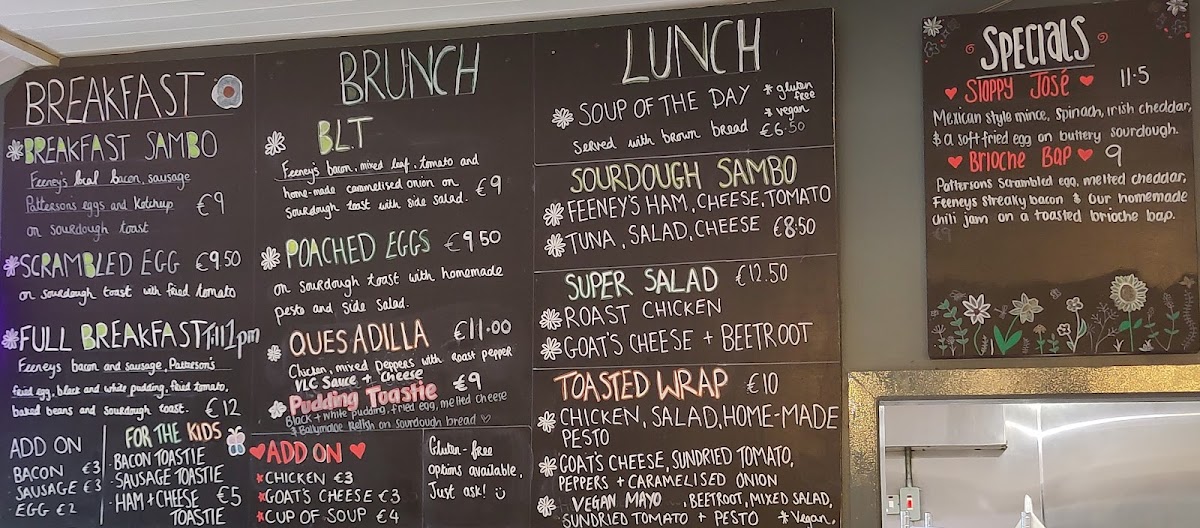 BREAKFAST
BREAKFAST SAMBO
Feeney's local bacon, sausage
Patterson's eggs and Ketchup €9
on sourdough toast
SCRAMBLED EGG €9.50
on sourdough toast with fried tomato
FULL BREAKFAST Till 1pm
Feeneys bacon and sausage, Patterson's
fried egg, black and white pudding, fried tomato,
baked beans and sourdough toast. €12
ADD ON
BACON €3
SAUSAGE €3
EGG €2
FOR THE KIDS
BACON TOASTIE
SAUSAGE TOASTIE
HAM + CHEESE €5
TOASTIE
BRUNCH
BLT
Feeney's bacon, mixed leaf, tomato and
home-made caramelised onion on
sourdough toast with side salad. €9
POACHED EGGS €9.50
on sourdough toast with homemade
pesto and side salad.
QUESADILLA €11.00
Chicken, mixed peppers with roast pepper
VLC Sauce + Cheese
Pudding Toastie €9
Black + white pudding, fried egg, melted cheese
& Ballymaloe Relish on sourdough bread
ADD ON
CHICKEN €3
GOAT'S CHEESE €3
CUP OF SOUP €4
Gluten-free
options available,
Just ask!
LUNCH
SOUP OF THE DAY * gluten free
* vegan
Served with brown bread €6.50
SOURDOUGH SAMBO
FEENEY'S HAM, CHEESE, TOMATO
TUNA, SALAD, CHEESE €8.50
SUPER SALAD €12.50
ROAST CHICKEN
GOAT'S CHEESE + BEETROOT
TOASTED WRAP €10
CHICKEN, SALAD, HOME-MADE
PESTO
GOAT'S CHEESE, SUNDRIED TOMATO,
PEPPERS + CARAMELISED ONION
VEGAN MAYO, BEETROOT, MIXED SALAD,
SUNDRIED TOMATO + PESTO * Vegan.
SPECIALS
Sloppy José 11.5
Mexican style mince, spinach, irish cheddar,
& a soft fried egg on buttery sourdough.
Brioche Bap 9
Pattersons scrambled egg, melted cheddar,
Feeneys streaky bacon & our homemade
chili jam on a toasted brioche bap.